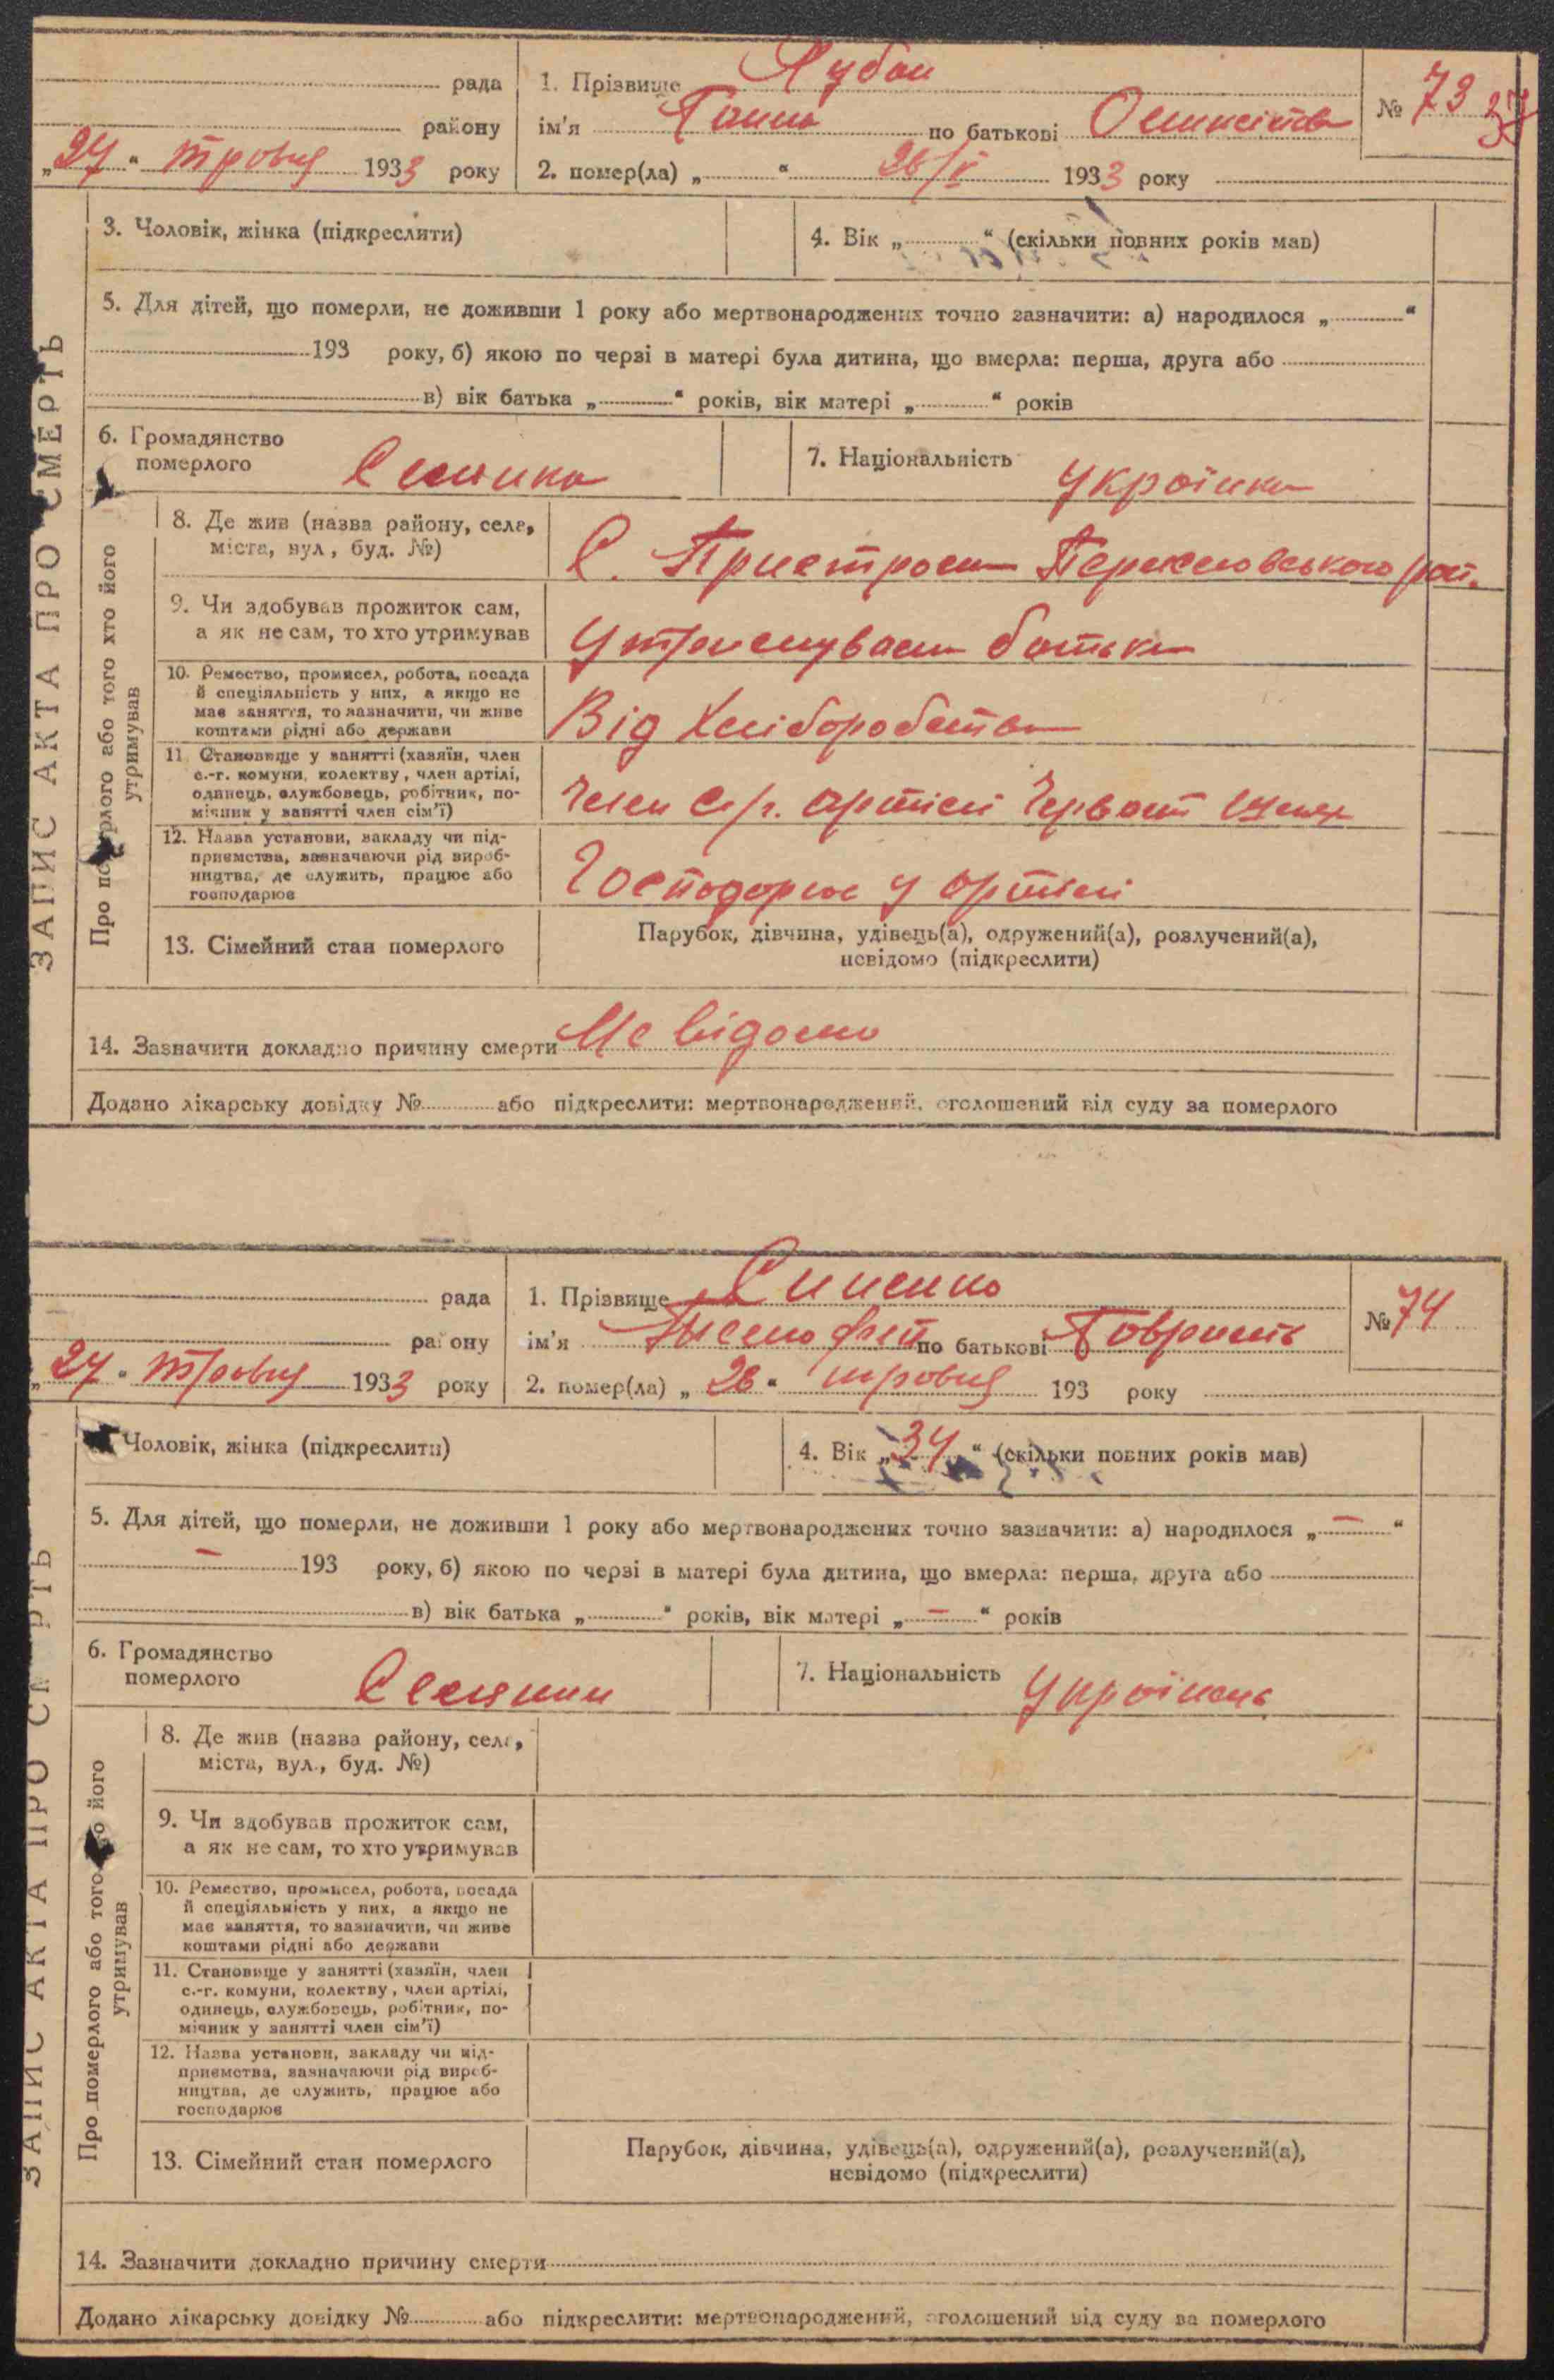 рада
району
„27“ травня 1933 року
1. Прізвище
ім'я Ганна по батькові
№ 73 37
2. помер(ла) „ “ 26/V 1933 року
ЗАПИС АКТА ПРО СМЕРТЬ
3. Чоловік, жінка (підкреслити)
4. Вік „ “ (скільки повних років мав)
5. Для дітей, що померли, не доживши 1 року або мертвонароджених точно зазначити: а) народилося „ “
193 року, б) якою по черзі в матері була дитина, що вмерла: перша, друга або
в) вік батька „ “ років, вік матері „ “ років
6. Громадянство
померлого Селянка
7. Національність Українка
Про померлого або того хто його
утримував
8. Де жив (назва району, села,
міста, вул., буд. №)
С. Пристроми Переяславського рай.
9. Чи здобував прожиток сам,
а як не сам, то хто утримував
Утримували батьки
10. Ремество, промисел, робота, посада
й спеціяльність у них, а якщо не
має заняття, то зазначити, чи живе
коштами рідні або держави
Від Хліборобства
11. Становище у занятті (хазяїн, член
с.-г. комуни, колективу, член артілі,
одинець, службовець, робітник, по-
мічник у занятті член сім'ї)
Член с/г. артілі Шлях
12. Назва установи, закладу чи під-
приємства, зазначаючи рід вироб-
ництва, де служить, працює або
господарює
Господарює у артілі
13. Сімейний стан померлого
Парубок, дівчина, удівець(а), одружений(а), розлучений(а),
невідомо (підкреслити)
14. Зазначити докладно причину смерти Не відомо
Додано лікарську довідку № або підкреслити: мертвонароджений, оголошений від суду за померлого
рада
району
„27“ травня 1933 року
1. Прізвище Синенко
ім'я по батькові
№ 74
2. помер(ла) „26“ травня 193 року
ЗАПИС АКТА ПРО СМЕРТЬ
Чоловік, жінка (підкреслити)
4. Вік „34“ (скільки повних років мав)
5. Для дітей, що померли, не доживши 1 року або мертвонароджених точно зазначити: а) народилося „—“
— 193 року, б) якою по черзі в матері була дитина, що вмерла: перша, друга або
в) вік батька „ “ років, вік матері „—“ років
6. Громадянство
померлого Селянин
7. Національність Українець
Про померлого або того хто його
утримував
8. Де жив (назва району, села,
міста, вул., буд. №)
9. Чи здобував прожиток сам,
а як не сам, то хто утримував
10. Ремество, промисел, робота, посада
й спеціяльність у них, а якщо не
має заняття, то зазначити, чи живе
коштами рідні або держави
11. Становище у занятті (хазяїн, член
с.-г. комуни, колективу, член артілі,
одинець, службовець, робітник, по-
мічник у занятті член сім'ї)
12. Назва установи, закладу чи під-
приємства, зазначаючи рід вироб-
ництва, де служить, працює або
господарює
13. Сімейний стан померлого
Парубок, дівчина, удівець(а), одружений(а), розлучений(а),
невідомо (підкреслити)
14. Зазначити докладно причину смерти
Додано лікарську довідку № або підкреслити: мертвонароджений, оголошений від суду за померлого